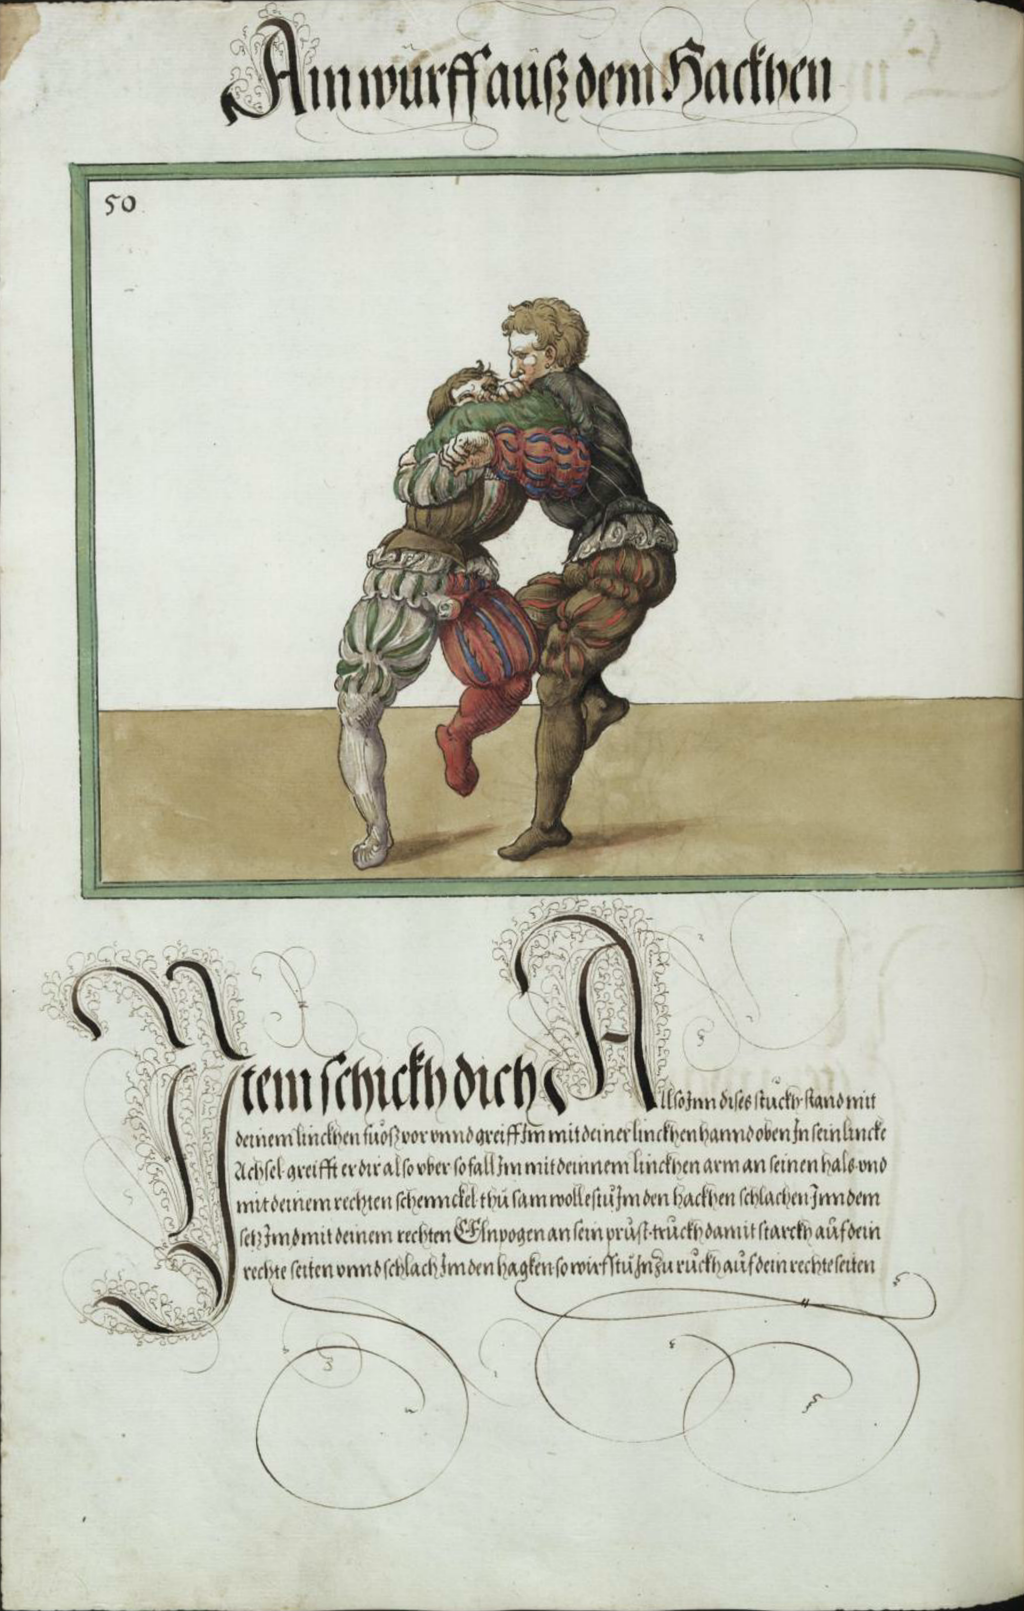 Ain würff aüß dem Hackhen
50
Item schickh dich Allso Inn dises stückh stand mit
deinem linckhen fuöß vor vnnd greiff Im mit deiner linckhen hannd oben In sein lincke
Achsel greifft er dir also vber so fall Im mit deinnem linckhen arm an seinen hals vnd
mit deinem rechten schennckel thü sam wollestu Im den hackhen schlachen Inn dem
setz Im mit deinem rechten Elnpogen an sein prüst trückh damit starckh aüf dein
rechte seiten vnnd schlach Im den hagken so wirfstu In zu rückh aüf dein rechte seiten